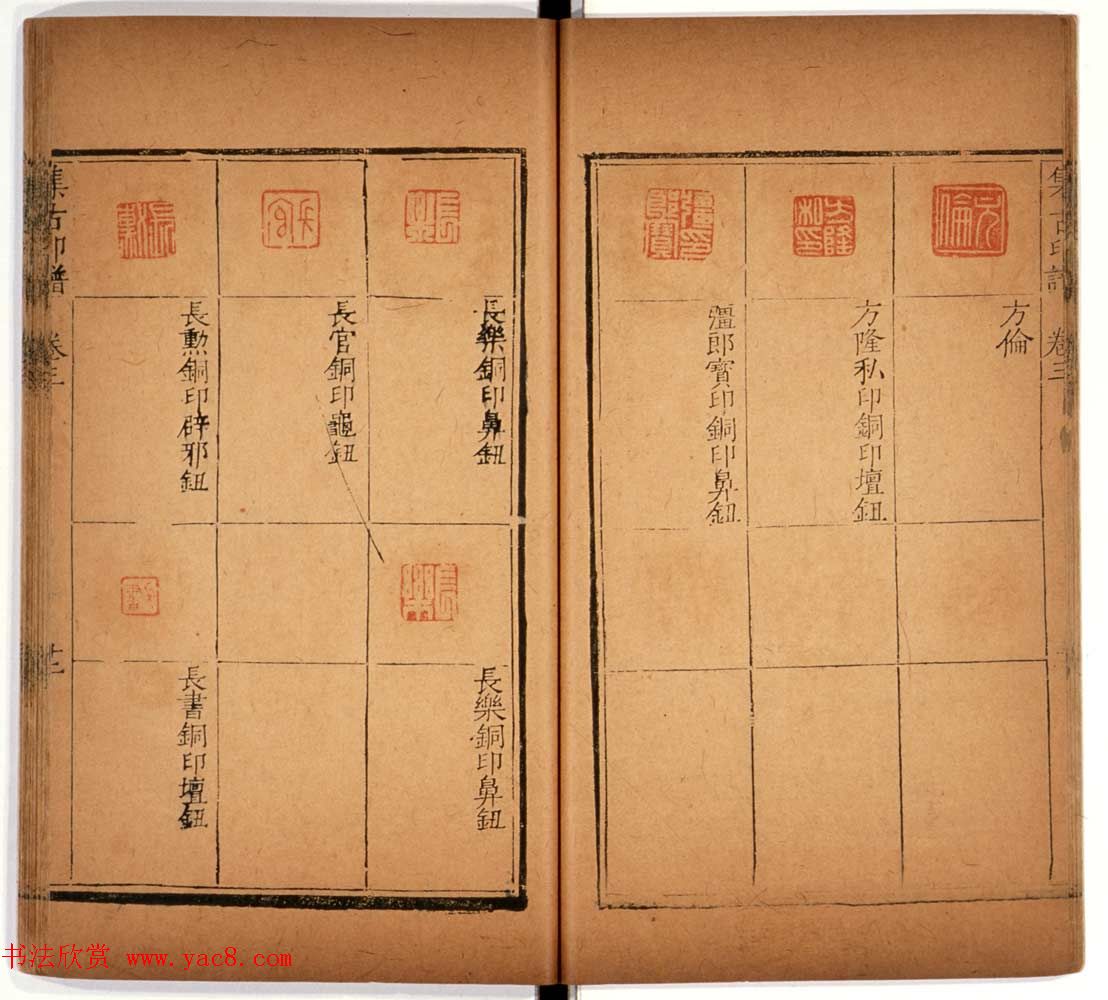 集古印譜 卷三
方倫
方隆私印銅印壇鈕
彊郎寶印銅印鼻鈕
長樂銅印鼻鈕
長官銅印龜鈕
長勲銅印辟邪鈕
長樂銅印鼻鈕
長書銅印壇鈕
集古印譜 卷三
书法欣赏 www.yac8.com